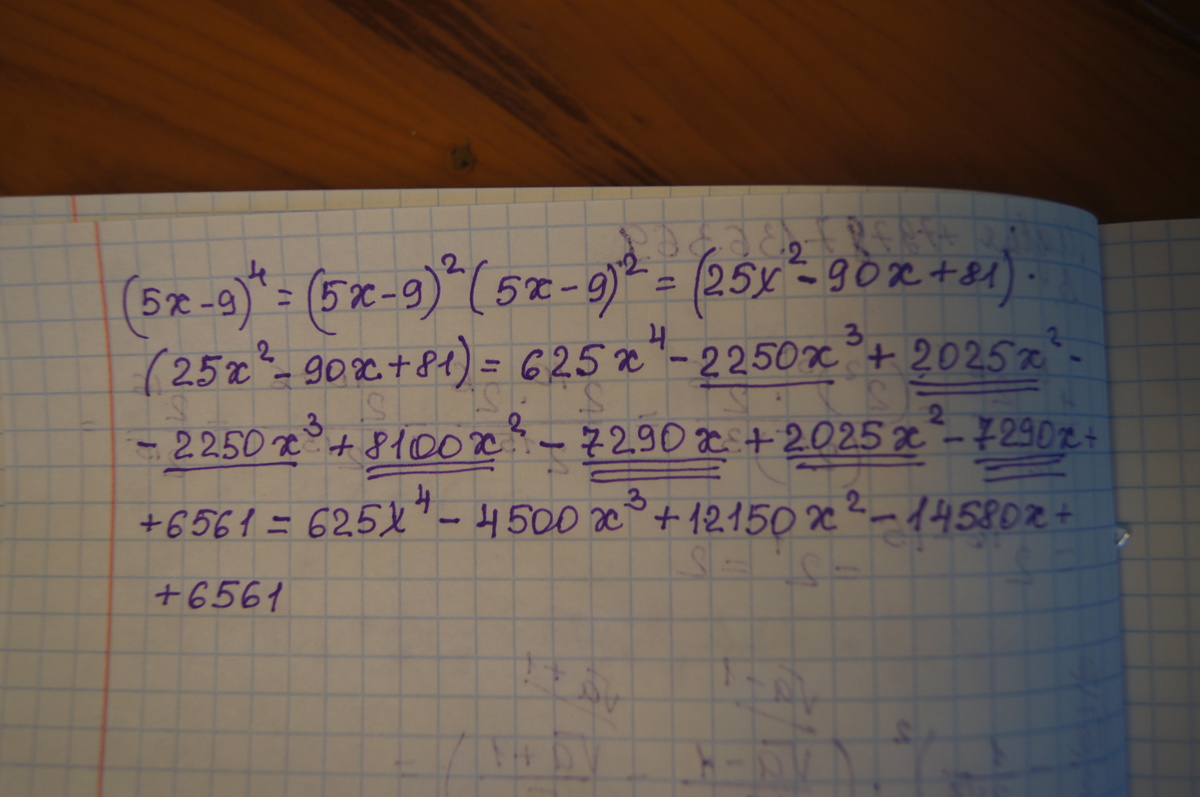 (5x-9)⁴ = (5x-9)² (5x-9)² = (25x²-90x+81)·
(25x²-90x+81) = 625x⁴ - 2250x³ + 2025x² -
- 2250x³ + 8100x² - 7290x + 2025x² - 7290x +
+6561 = 625x⁴ - 4500x³ + 12150x² - 14580x +
+6561